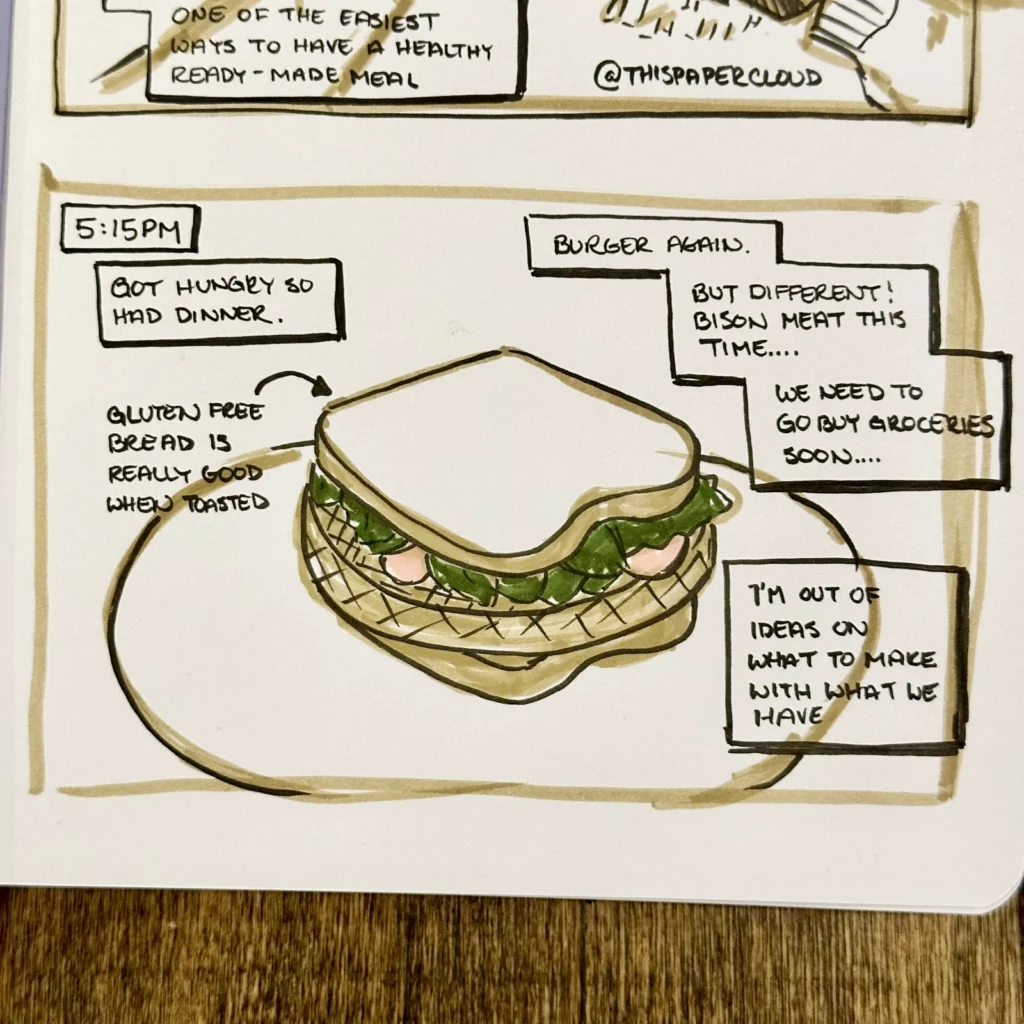 ONE OF THE EASIEST
WAYS TO HAVE A HEALTHY
READY-MADE MEAL
@THISPAPERCLOUD
5:15PM
GOT HUNGRY SO
HAD DINNER.
GLUTEN FREE
BREAD IS
REALLY GOOD
WHEN TOASTED
BURGER AGAIN.
BUT DIFFERENT!
BISON MEAT THIS
TIME....
WE NEED TO
GO BUY GROCERIES
SOON....
I'M OUT OF
IDEAS ON
WHAT TO MAKE
WITH WHAT WE
HAVE